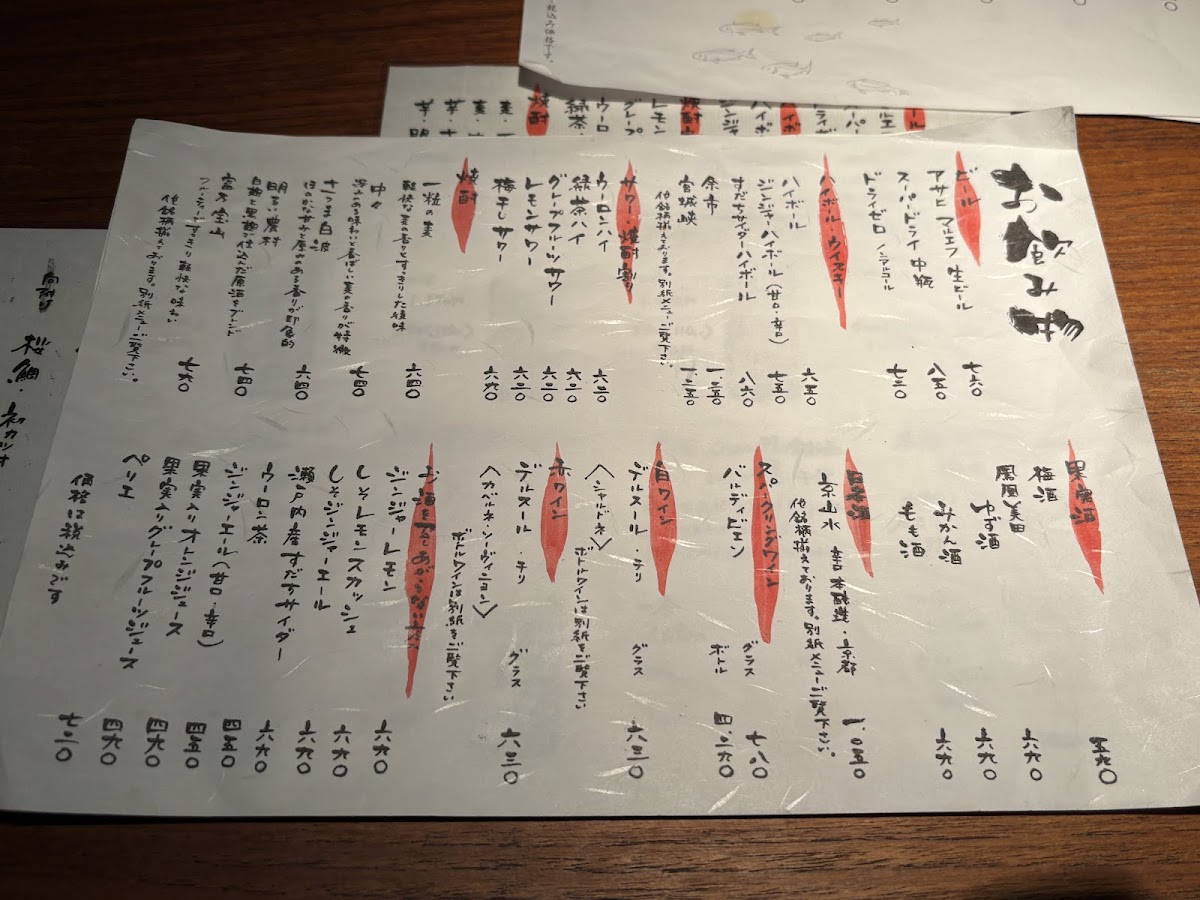 お飲み物
ビール
アサヒ マルエフ 生ビール 七六〇
スーパードライ 中瓶 八五〇
ドライゼロ ノンアルコール 七三〇
ハイボール・ウイスキー
ハイボール 六五〇
ジンジャーハイボール(甘口・辛口) 七五〇
すだちサイダーハイボール 八六〇
余市 一.二五〇
宮城峡 一.二五〇
他銘柄揃えております。別紙メニューご覧下さい。
サワー・焼酎割り
ウーロンハイ 六二〇
緑茶ハイ 六二〇
グレープフルーツサワー 六二〇
レモンサワー 六二〇
梅干しサワー 六六〇
焼酎
一粒の麦 六四〇
軽快な麦の香りとすっきりした後味
中々 七四〇
深みのある味わいと香ばしい麦の香りが特徴
さつま白波 六四〇
ほのかな甘さと厚みのある香りが印象的
明るい農村 七四〇
白麹と黒麹で仕込んだ原酒をブレンド
富乃宝山 七六〇
フルーティーですっきり軽快な味わい
他銘柄揃えております。別紙メニューご覧下さい。
果実酒
梅酒 五六〇
鳳凰美田
ゆず酒 六六〇
みかん酒 六六〇
もも酒 六六〇
日本酒
京山水 辛口 本醸造・京都 一.〇五〇
他銘柄揃えております。別紙メニューご覧下さい。
スパークリングワイン
バルディビエソ グラス 七八〇
ボトル
白ワイン
デルスール・チリ グラス 六三〇
〈シャルドネ〉
ボトルワインは別紙をご覧下さい
赤ワイン
デルスール・チリ グラス 六三〇
〈カベルネ・ソーヴィニヨン〉
ボトルワインは別紙をご覧下さい
お酒を召しあがらない方へ
ジンジャーレモン 六六〇
しそレモンスカッシュ 六六〇
しそジンジャーエール 六六〇
瀬戸内産すだちサイダー 六六〇
ウーロン茶 四五〇
ジンジャーエール(甘口・辛口) 四五〇
果実入りオレンジジュース 四九〇
果実入りグレープフルーツジュース 四九〇
ペリエ
価格は税込みです
税込み価格です。
向附
桜鯛・初カツオ